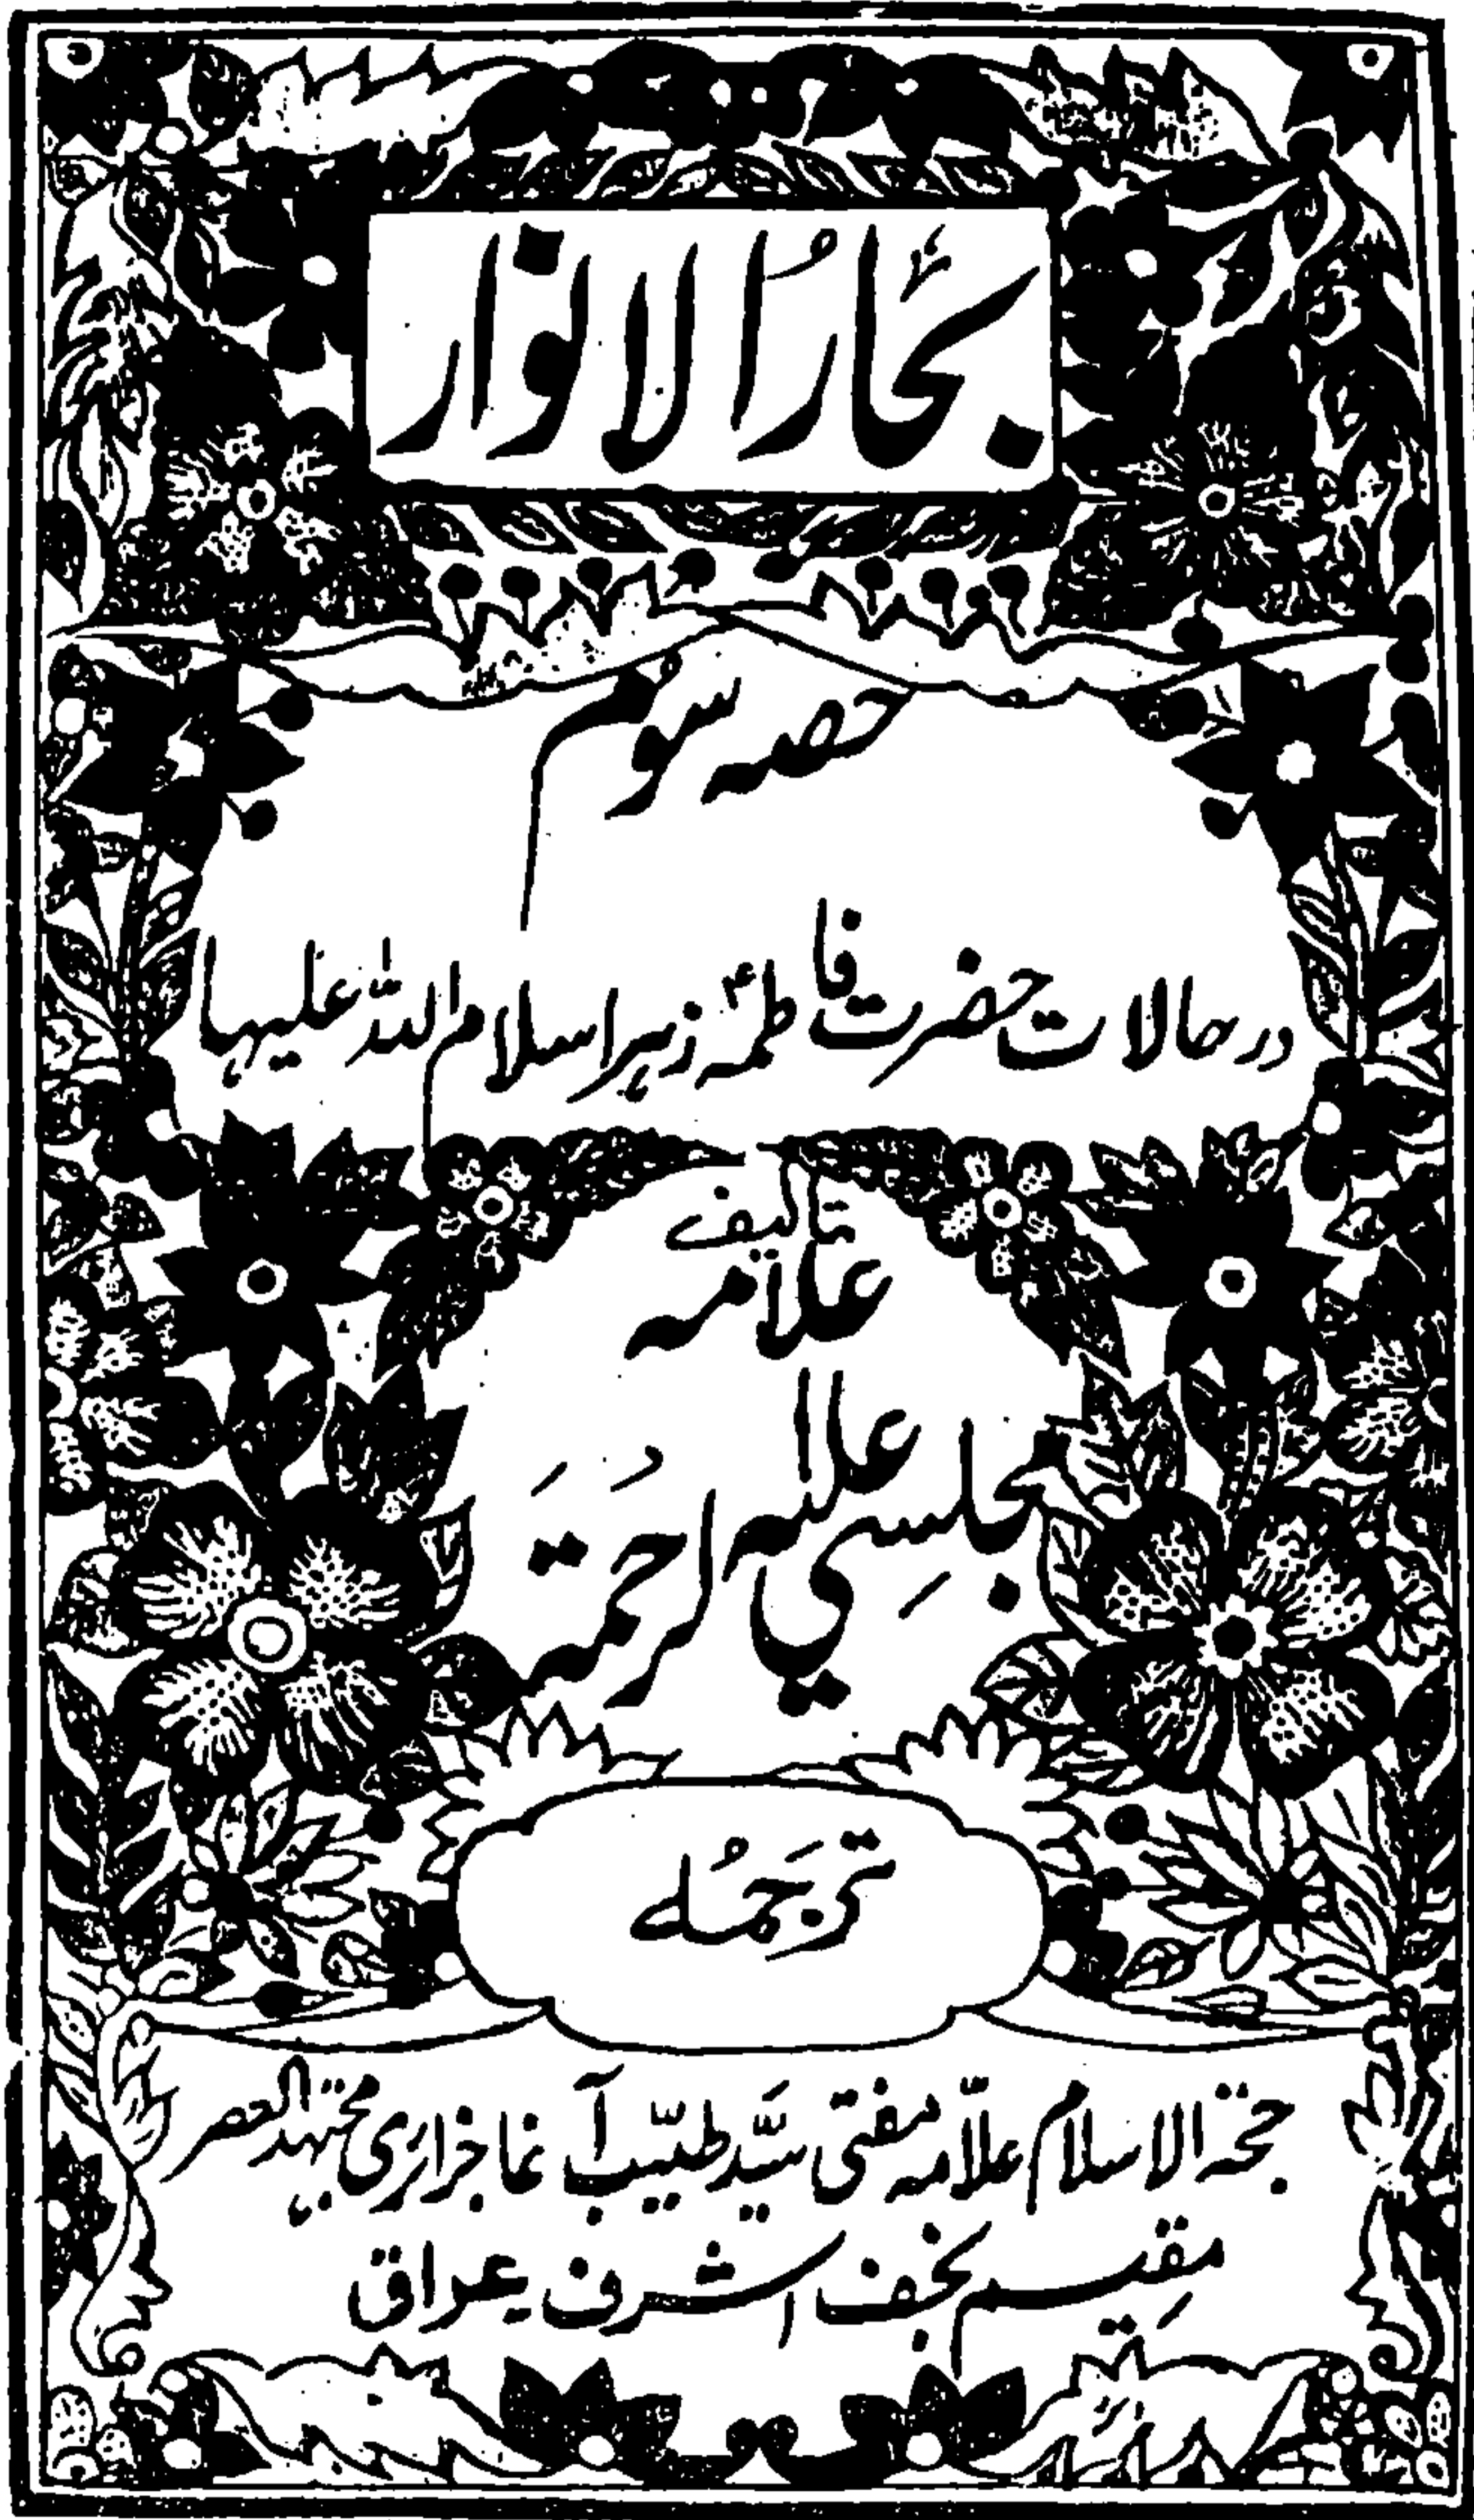 بحارُ الانوار
حصہ سوم
در حالات حضرت فاطمہؑ زہرا سلام اللہ علیہا
تالیف
علامہ
مجلسِی علیہ الرحمَۃ
ترجَمُہ
حجۃ الاسلام علّامہ مفتی سیَّد طیّب آغا جزائری مجتہد العصر
مقیِم نجف اشرف عراق